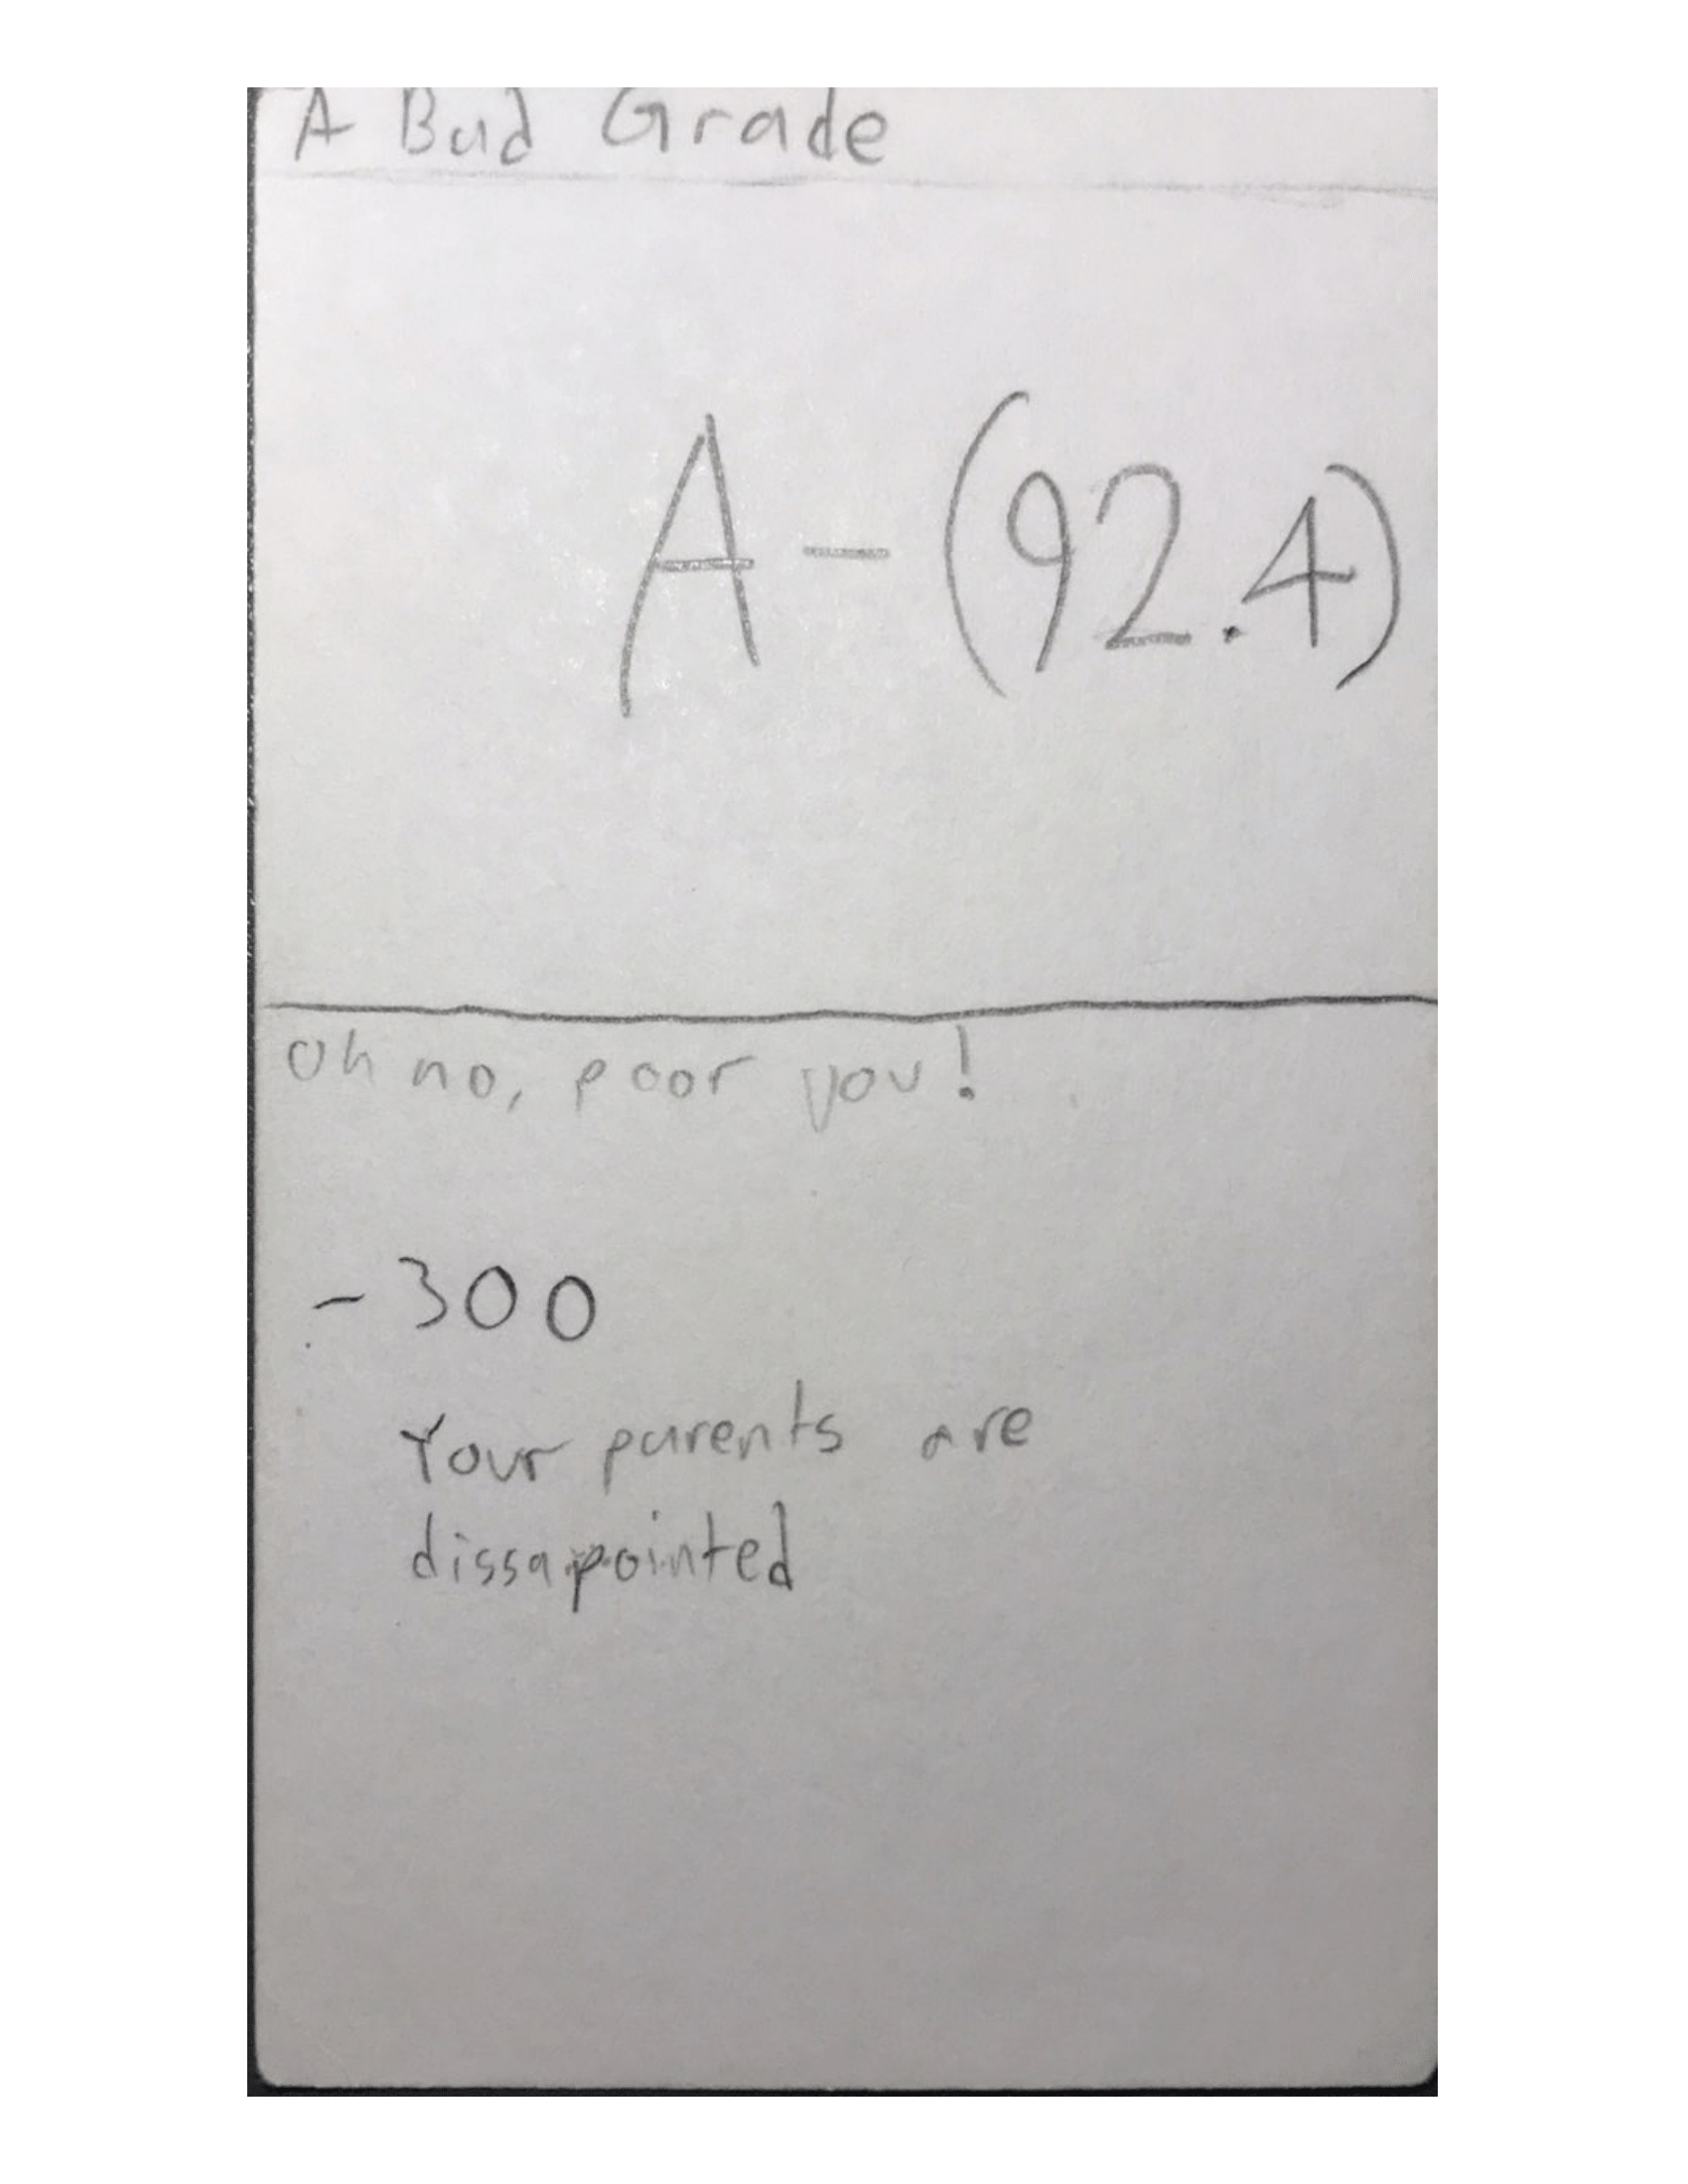 A Bad Grade
A- (92.4)
Oh no, poor you!
- 300
Your parents are
dissapointed